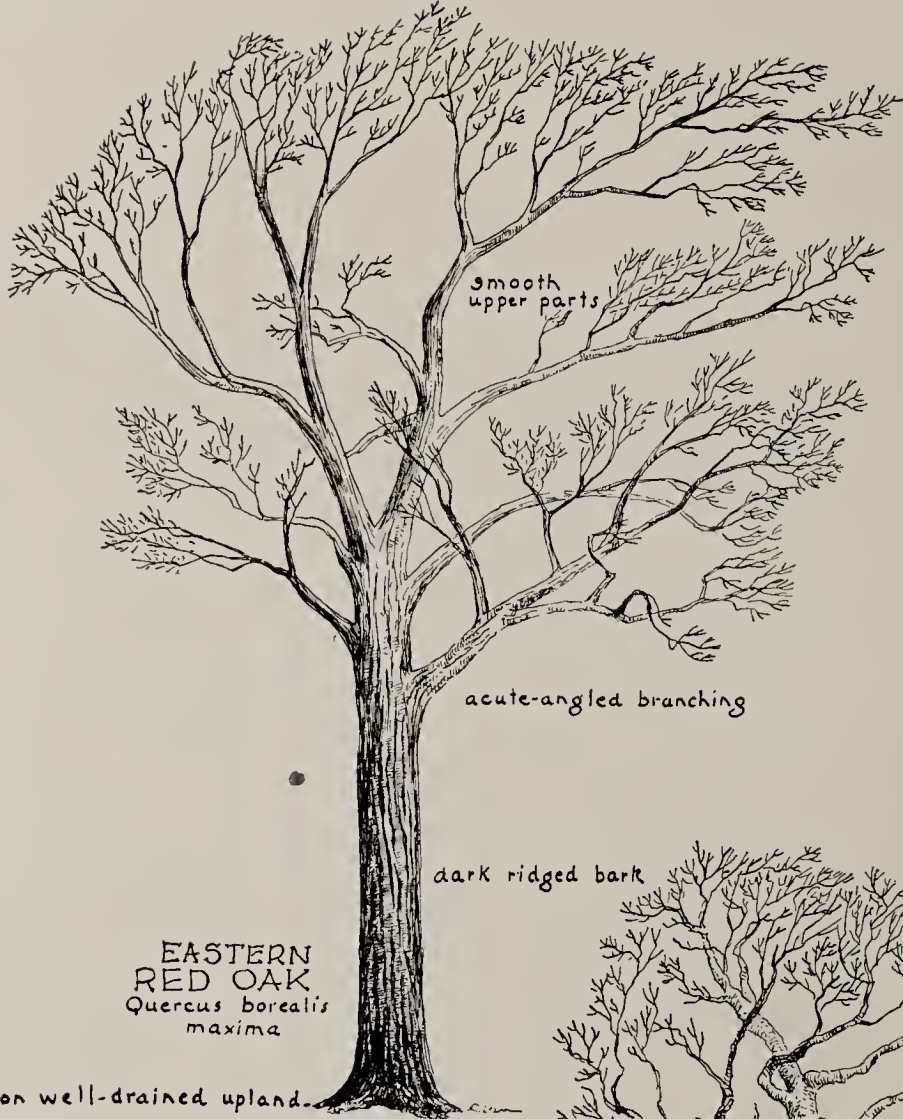 smooth
upper parts
acute-angled branching
dark ridged bark
EASTERN
RED OAK
Quercus borealis
maxima
on well-drained upland